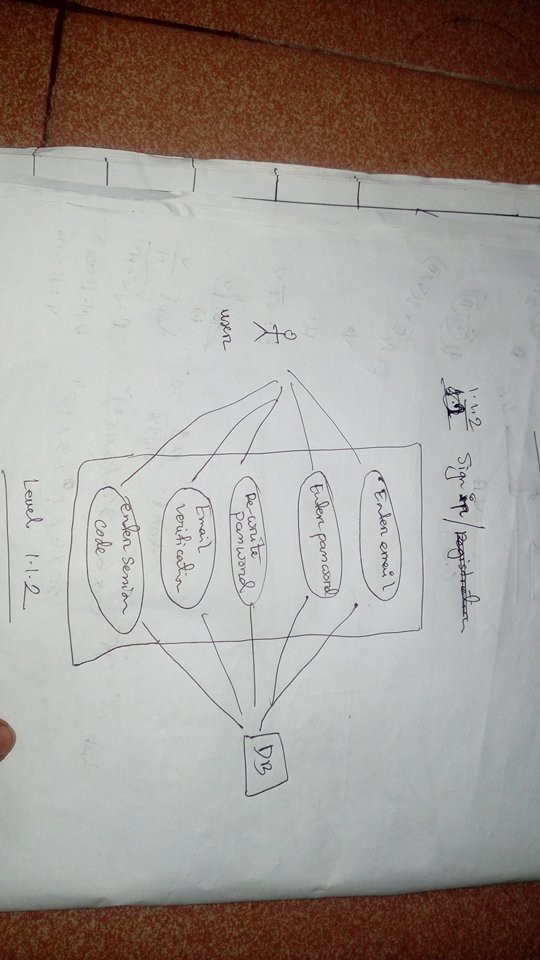 1.1.2 Sign up/
user
Enter email
Enter password
Re-write
password
Email
verification
enter session
code
DB
Level 1.1.2